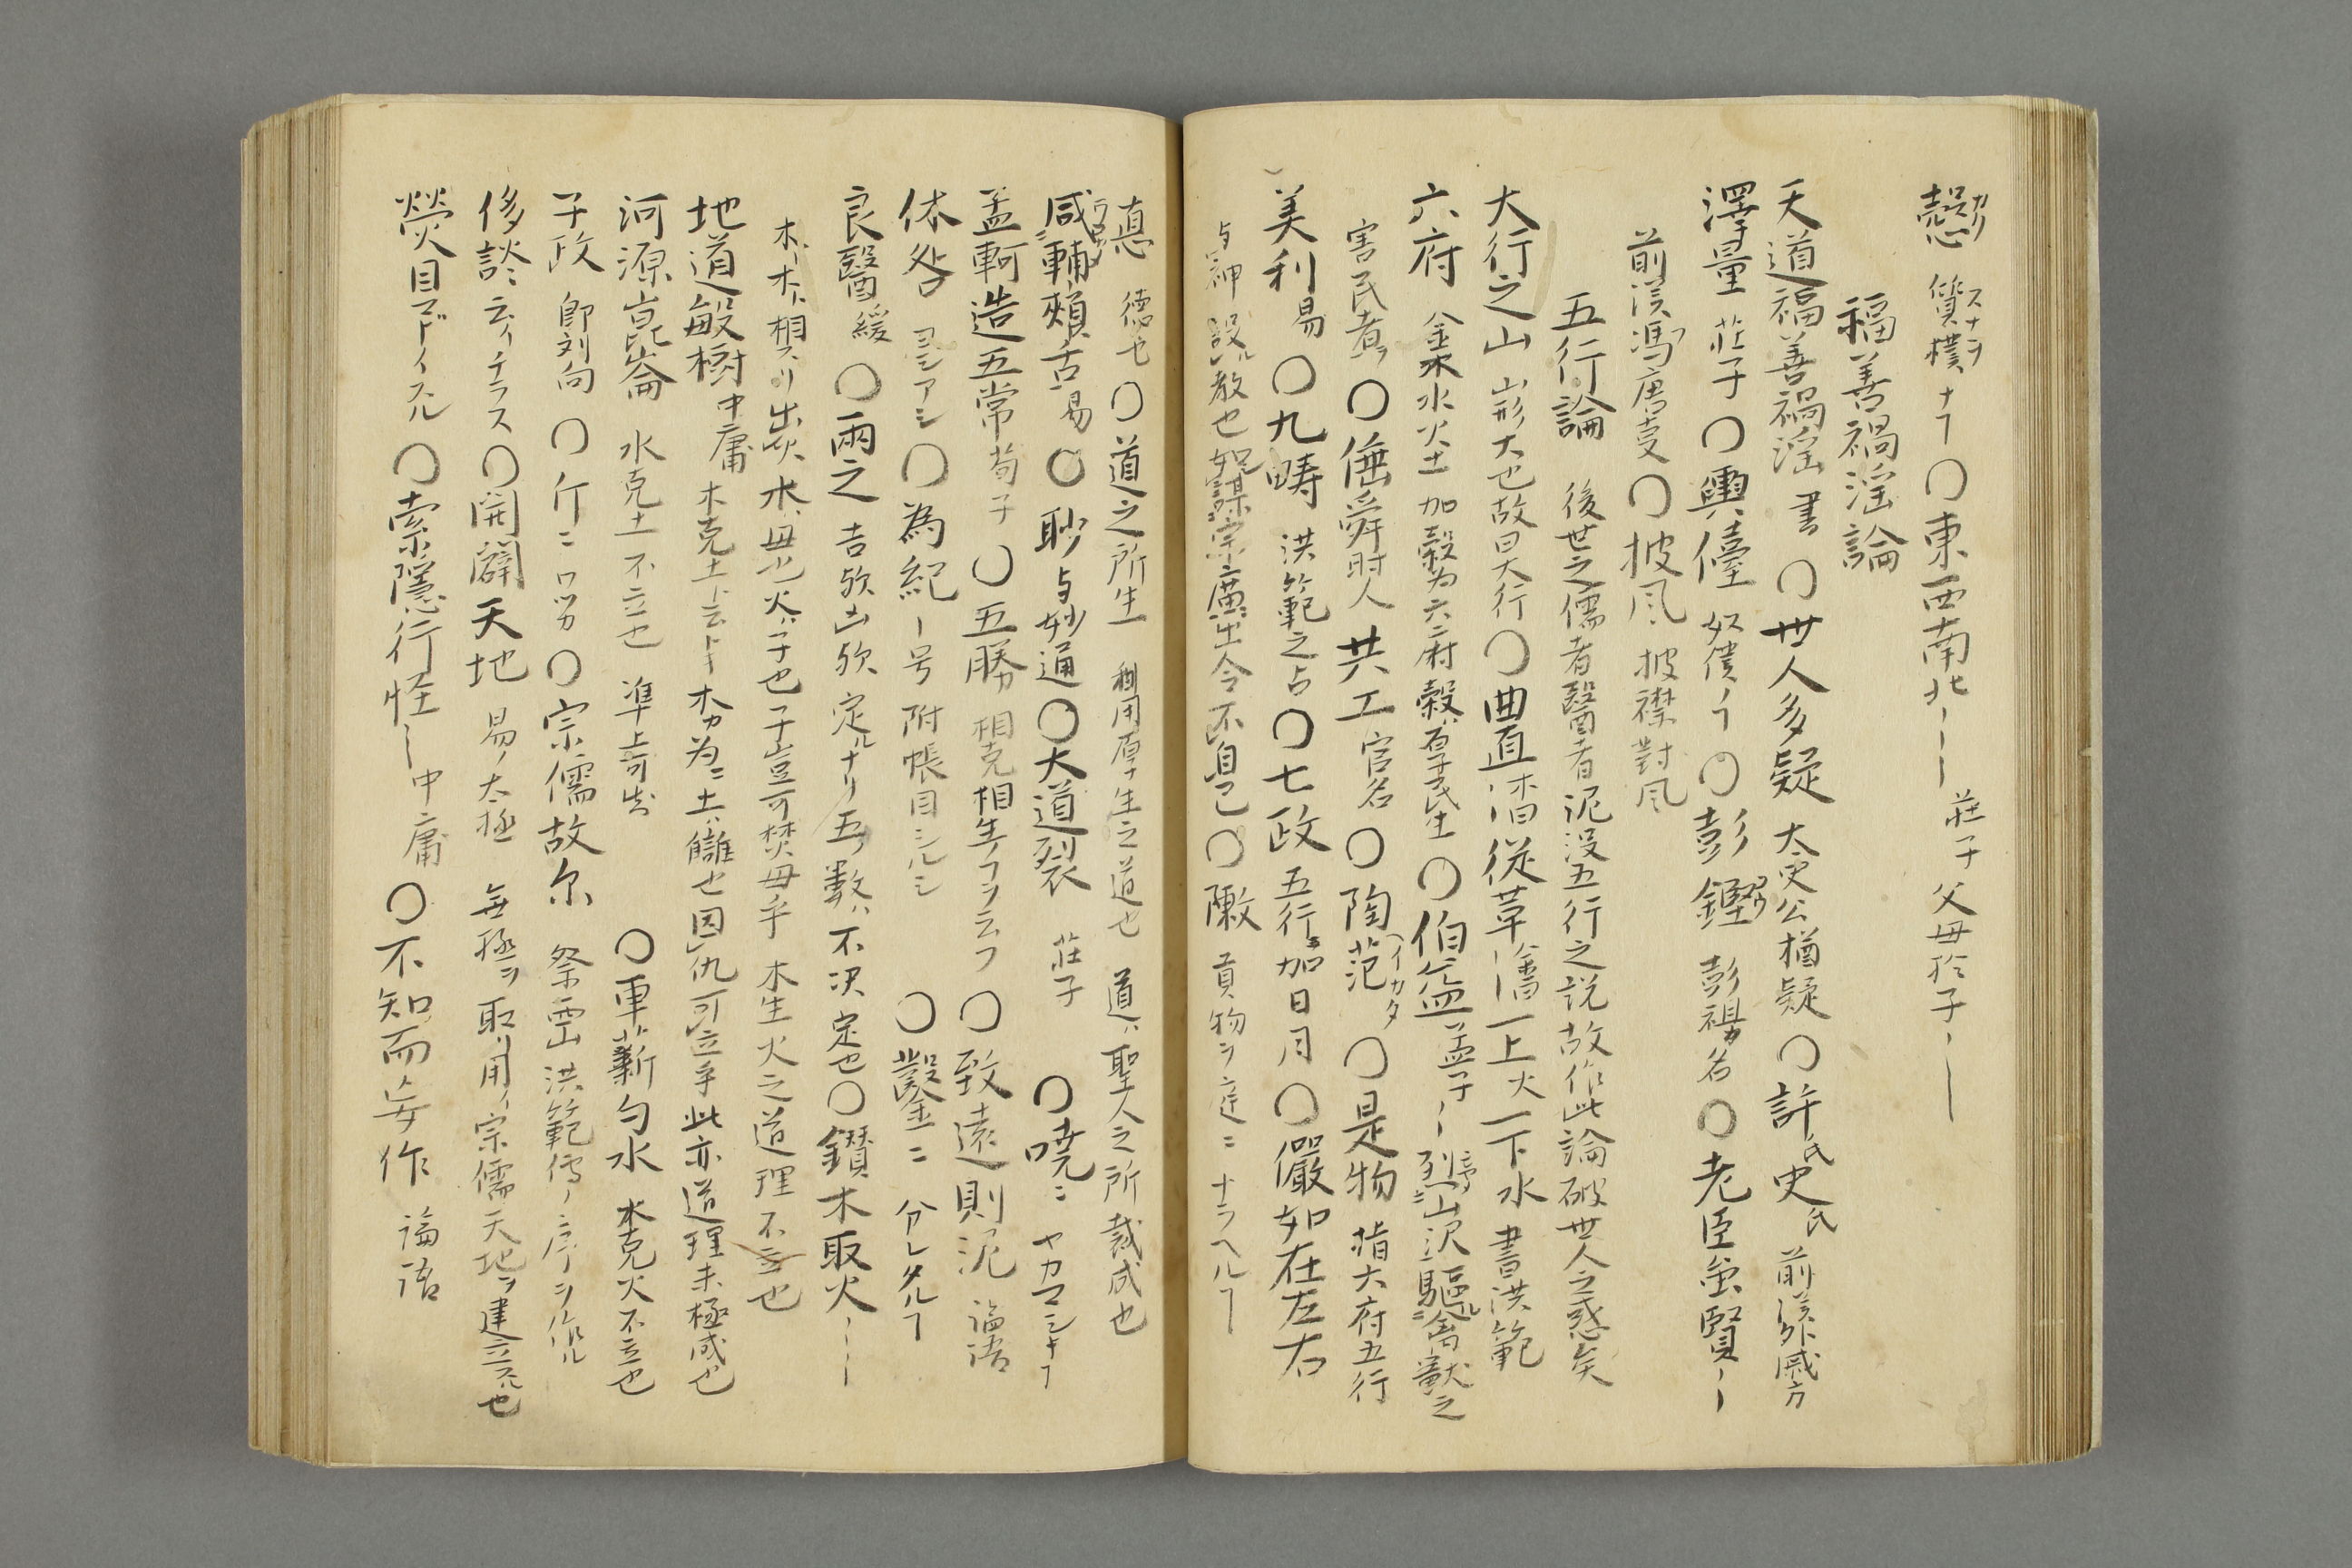 質樸 スナヲ ナヿ 〇東西南北 莊子父母於子
福善禍淫論
天道福善禍淫 書 〇世人多疑 太史公猶疑 〇許氏史氏 前漢外戚方
澤量 莊子 〇輿儓 奴僕ノヿ 〇彭鏗 彭祖カ名 〇老臣雖賢
前漢馮唐支 〇披風 披襟對風
五行論 後世之儒者醫者泥没五行之説故作此論破世人之惑矣
大行之山 山形大也故曰大行 〇曲直 從革 上火 下水 書洪範
六府 金木水火土 加穀為六府 穀ハ厚民生 〇伯益 孟子 烈山沢驅ル禽獸之
害民者ヲ 〇 舜時人 共工 官名 〇陶范 イカタ 〇是物 指六府五行
美利 易 〇九疇 洪範之占 〇七政 五行ニ加日月 〇儼如在左右
与神設ル教也 如謀宗庿出令不自己 〇陳 貢物ヲ庭ニ ナラヘルヿ
悳 徳也 〇道之所生 利用厚生之道也 道ハ聖人之所裁成也
咸輔頰舌 易 〇眇 与妙通 〇大道裂 莊子 〇嘵ニ ヤカマシキヿ
孟軻造五常 荀子 〇五勝 相克相生ノヿヲ云フ 〇致遠則泥 論語
休咎 ヨシアシ 〇為紀 号附帳目シルシ 〇鑿ニ 分レタルヿ
良醫 緩 〇兩之 吉欤凶欤 定ルナリ 五ノ數ハ不決定也 〇鑽木取火
木ト木ト相スリ出火 木ハ母也火ハ子也 子豈可焚母乎 木生火之道理不立也
地道敏樹 中庸 木克土ト云トキ 木カ為ニ土ハ讎也 因仇可立乎 此亦道理未極成也
河源崑崙 水克土不立也 準上可知 〇車薪勺水 水克火不立也
子政 即刘向 〇斤ニ ワツカ 〇宗儒故尔 祭 洪範傳ノ序ヲ作ル
侈談 云イチラス 〇開闢天地 易ノ太極 無極ヲ取リ用イ 宗儒天地ヲ建立スル也
熒目 マドイスル 〇索隱行怪 中庸 〇不知而妄作 論語